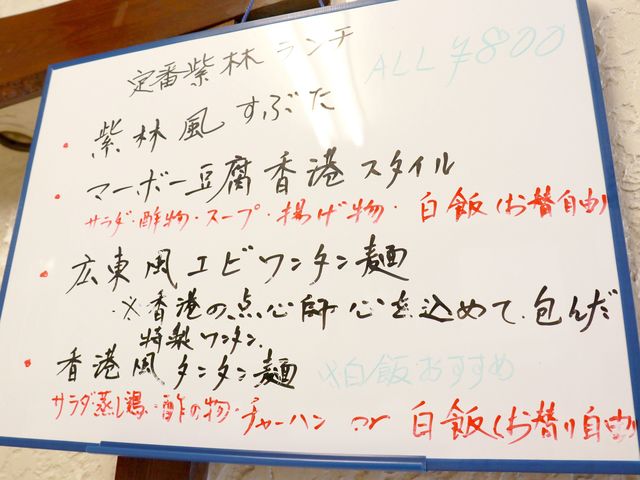 定番紫林ランチ ALL ¥800
・紫林風すぶた
・マーボー豆腐香港スタイル
サラダ・酢物・スープ・揚げ物・白飯(お替自由)
・広東風エビワンタン麺
・※香港の点心師心を込めて、包んだ
特製ワンタン、
・香港風タンタン麺 ※白飯おすすめ
サラダ・蒸し鶏・酢の物・チャーハン or 白飯(お替り自由)